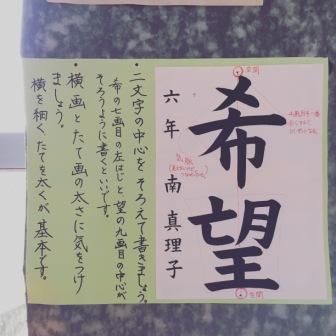 空間
希望
空間
六年 南真理子
・二文字の中心をそろえて書きましょう。
希の七画目の左はじと望の九画目の中心が
そろうように書くといいです。
・横画とたて画の太さに気をつけ
ましょう。
横を細く、たてを太くが基本です。